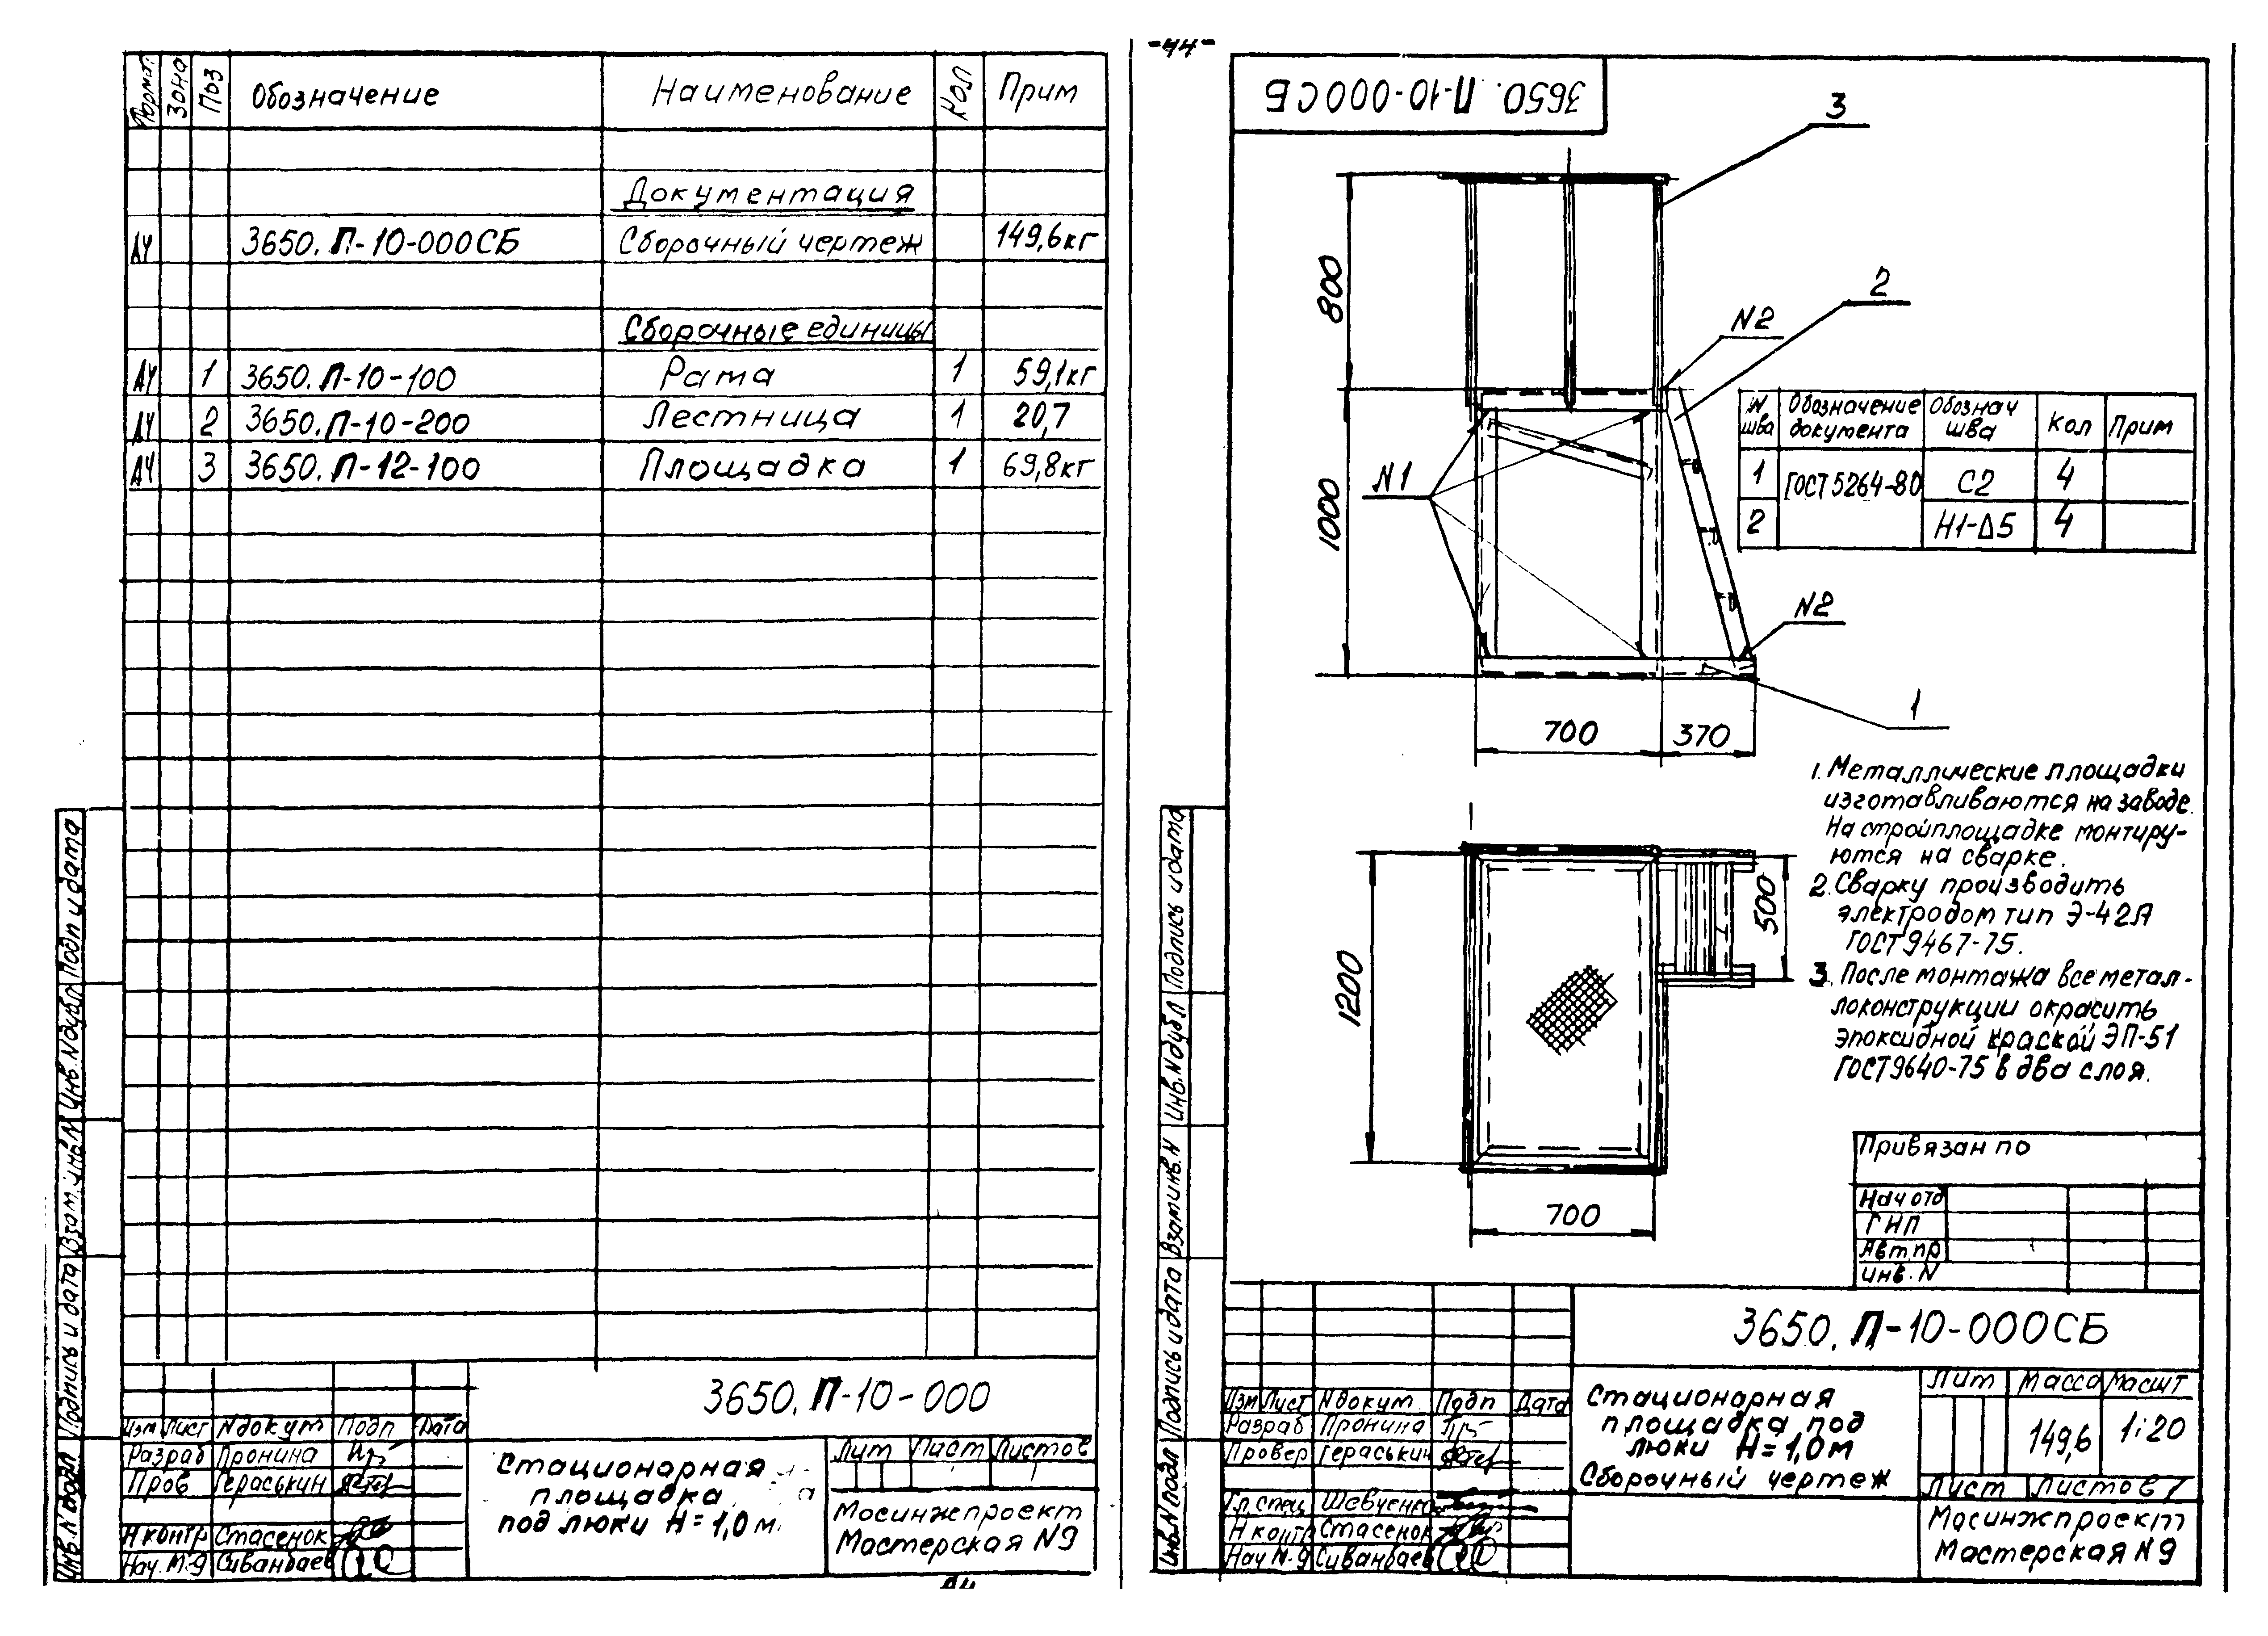 -44-
Формат Зона Поз Обозначение Наименование Кол Прим
Документация
А4 3650.П-10-000СБ Сборочный чертеж 149,6кг
Сборочные единицы
А4 1 3650.П-10-100 Рама 1 59,1кг
А4 2 3650.П-10-200 Лестница 1 20,7
А4 3 3650.П-12-100 Площадка 1 69,8кг
Подп и дата
Инв.Nдубл
Взам.инвN
Подпись и дата
Инв.N подл
3650.П-10-000
Изм Лист Nдокум Подп Дата
Разраб Пронина
Пров Гераськин
Н контр Стасенок
Нач.М-9 Сиванбаев
Стационарная
площадка
под люки Н=1,0м
Лит Лист Листов
1
Мосинжпроект
Мастерская N9
А4
3650.П-10-000СБ
3
2
N2
800
1000
N1
N2
1
700
370
N шва Обозначение документа Обознач шва Кол Прим
1 ГОСТ5264-80 С2 4
2 Н1-Δ5 4
1. Металлические площадки
изготавливаются на заводе.
На стройплощадке монтиру-
ются на сварке.
2. Сварку производить
электродом тип Э-42А
ГОСТ9467-75.
3. После монтажа все метал-
локонструкции окрасить
эпоксидной краской ЭП-51
ГОСТ9640-75 в два слоя.
1200
500
700
Привязан по
Нач отд
ГИП
Авт.пр
инв.N
Подпись и дата
Инв.Nдубл
Взам инв.N
Подпись и дата
Инв.Nподл
3650.П-10-000СБ
Изм Лист Nдокум. Подп Дата
Разраб Пронина
Провер Гераськин
Гл.спец Шевченко
Н контр Стасенок
Нач М-9 Сиванбаев
Стационарная
площадка под
люки Н=1,0м
Сборочный чертеж
Лит Масса Масшт
149,6 1:20
Лист Листов 1
Мосинжпроект
Мастерская N9